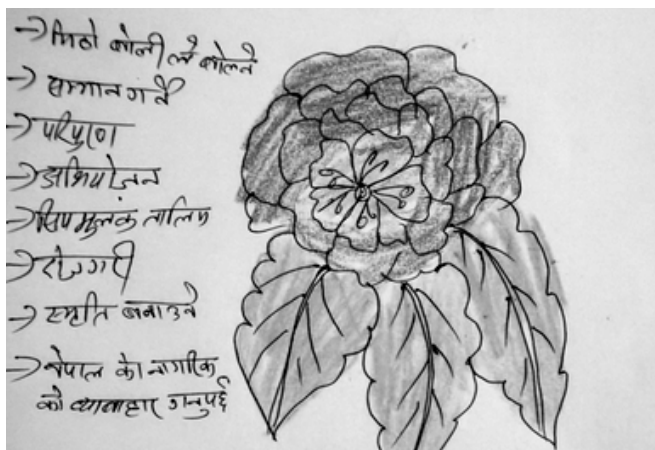 → मिठो बोली ले बोल्ने
→ सम्मान गर्ने
→ परिपुरण
→ अभियोजन
→ सिपमुलक तालिम
→ रोजगरी
→ स्मृति बनाउने
→ नेपाल को नागरिक
को व्यावाहार गनुपर्छ